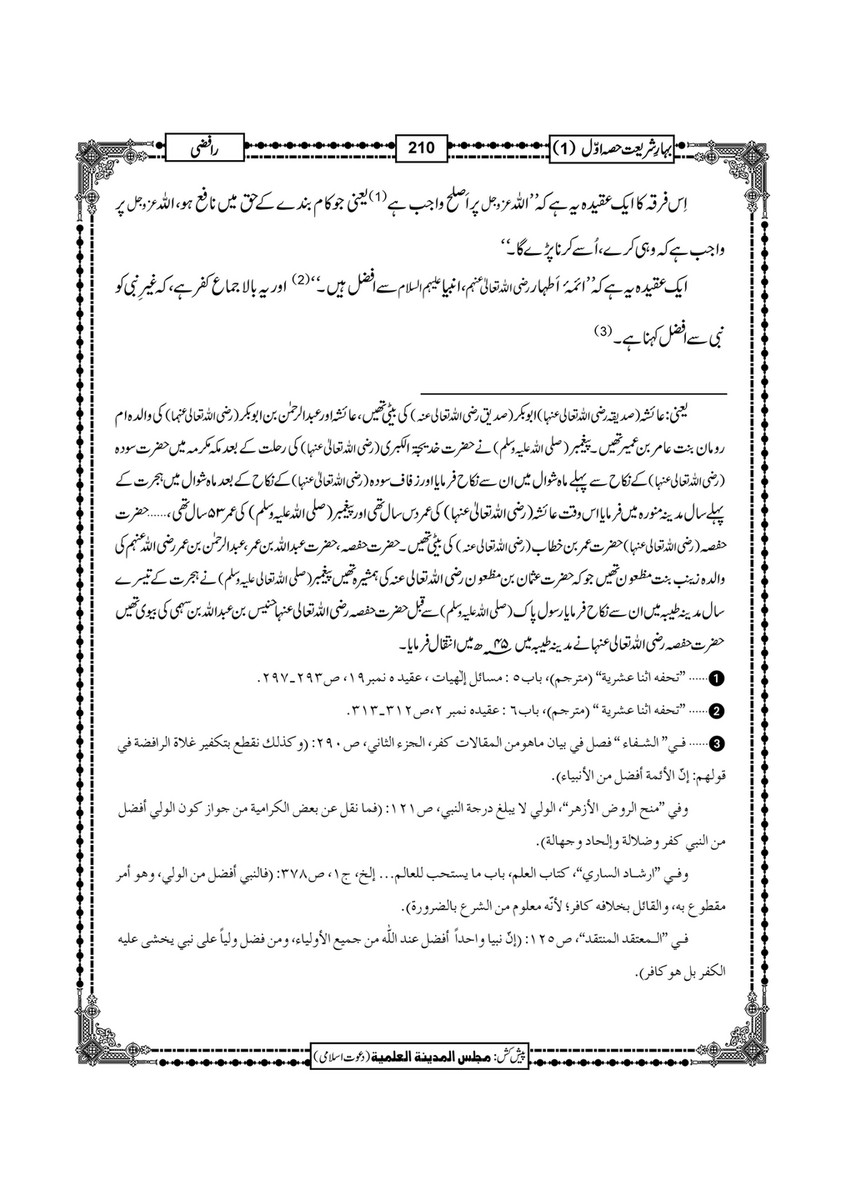 بہارِ شریعت حصہ اوّل (1)
210
رافضی
اِس فرقہ کا ایک عقیدہ یہ ہے کہ ’’اللہ عزوجل پر اَصلح واجب ہے (1) یعنی جو کام بندے کے حق میں نافع ہو، اللہ عزوجل پر
واجب ہے کہ وہی کرے، اُسے کرنا پڑے گا۔‘‘
ایک عقیدہ یہ ہے کہ ’’ائمۂ اَطہار رضی اللہ تعالیٰ عنہم، انبیا علیہم السلام سے افضل ہیں۔‘‘ (2) اور یہ بالاجماع کفر ہے، کہ غیرِ نبی کو
نبی سے افضل کہنا ہے۔ (3)
یعنی: عائشہ (صدیقہ رضی اللہ تعالیٰ عنہا) ابوبکر (صدیق رضی اللہ تعالی عنہ) کی بیٹی تھیں، عائشہ اور عبدالرحمٰن بن ابوبکر (رضی اللہ تعالیٰ عنہا) کی والدہ ام
رومان بنت عامر بن عمیر تھیں۔ پیغمبر (صلی اللہ علیہ وسلم) نے حضرت خدیجۃ الکبری (رضی اللہ تعالیٰ عنہا) کی رحلت کے بعد مکہ مکرمہ میں حضرت سودہ
(رضی اللہ تعالیٰ عنہا) کے نکاح سے پہلے ماہ شوال میں ان سے نکاح فرمایا اور زفاف سودہ (رضی اللہ تعالیٰ عنہا) کے نکاح کے بعد ماہ شوال میں ہجرت کے
پہلے سال مدینہ منورہ میں فرمایا اس وقت عائشہ (رضی اللہ تعالیٰ عنہا) کی عمر دس سال تھی اور پیغمبر (صلی اللہ علیہ وسلم) کی عمر ۵۳ سال تھی، ...... حضرت
حفصہ (رضی اللہ تعالیٰ عنہا) حضرت عمر بن خطاب (رضی اللہ تعالیٰ عنہ) کی بیٹی تھیں۔ حضرت حفصہ، حضرت عبداللہ بن عمر، عبدالرحمٰن بن عمر رضی اللہ عنہم کی
والدہ زینب بنت مظعون تھیں جو کہ حضرت عثمان بن مظعون رضی اللہ تعالی عنہ کی ہمشیرہ تھیں پیغمبر (صلی اللہ تعالی علیہ وسلم) نے ہجرت کے تیسرے
سال مدینہ طیبہ میں ان سے نکاح فرمایا رسول پاک (صلی اللہ علیہ وسلم) سے قبل حضرت حفصہ رضی اللہ تعالی عنہا حنیس بن عبداللہ بن سہمی کی بیوی تھیں
حضرت حفصہ رضی اللہ تعالی عنہا نے مدینہ طیبہ میں ۴۵ھ میں انتقال فرمایا۔
❶...... ”تحفه اثنا عشرية“ (مترجم)، باب٥ : مسائل إلٰهيات ، عقيده نمبر١٩، ص٢٩٣۔٢٩٧.
❷...... ”تحفه اثنا عشرية “ (مترجم)، باب٦ : عقيده نمبر ٢،ص٣١٢۔٣١٣.
❸...... في” الشفاء “ فصل في بيان ماهومن المقالات كفر، الجزء الثاني، ص٢٩٠: (وكذلك نقطع بتكفير غلاة الرافضة في
قولهم: إنّ الأئمة أفضل من الأنبياء).
وفي ”منح الروض الأزهر“، الولي لا يبلغ درجة النبي، ص١٢١: (فما نقل عن بعض الكرامية من جواز كون الولي أفضل
من النبي كفر وضلالة وإلحاد وجهالة).
وفي ”ارشاد الساري“، كتاب العلم، باب ما يستحب للعالم... إلخ، ج١، ص٣٧٨: (فالنبي أفضل من الولي، وهو أمر
مقطوع به، والقائل بخلافه كافر؛ لأنّه معلوم من الشرع بالضرورة).
في ”المعتقد المنتقد“، ص١٢٥: (إنّ نبيا واحداً أفضل عند اللّٰه من جميع الأولياء، ومن فضل ولياً على نبي يخشى عليه
الكفر بل هو كافر).
پیش کش: مجلس المدينة العلمية (دعوت اسلامی)